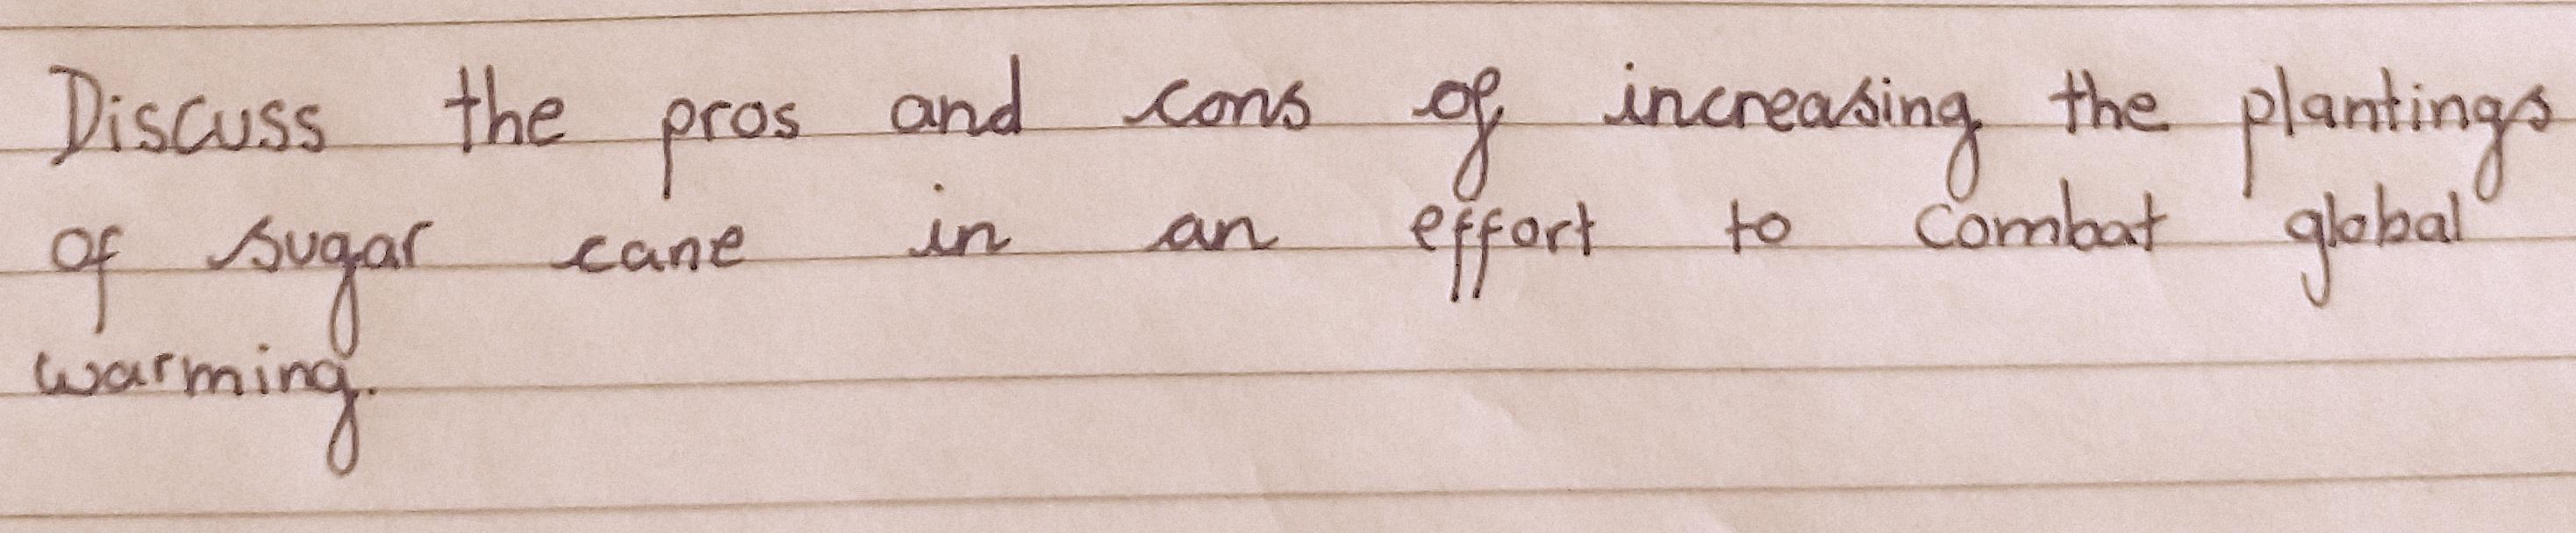 Discuss the pros and cons of increasing the plantings
of sugar cane in an effort to combat global
warming.